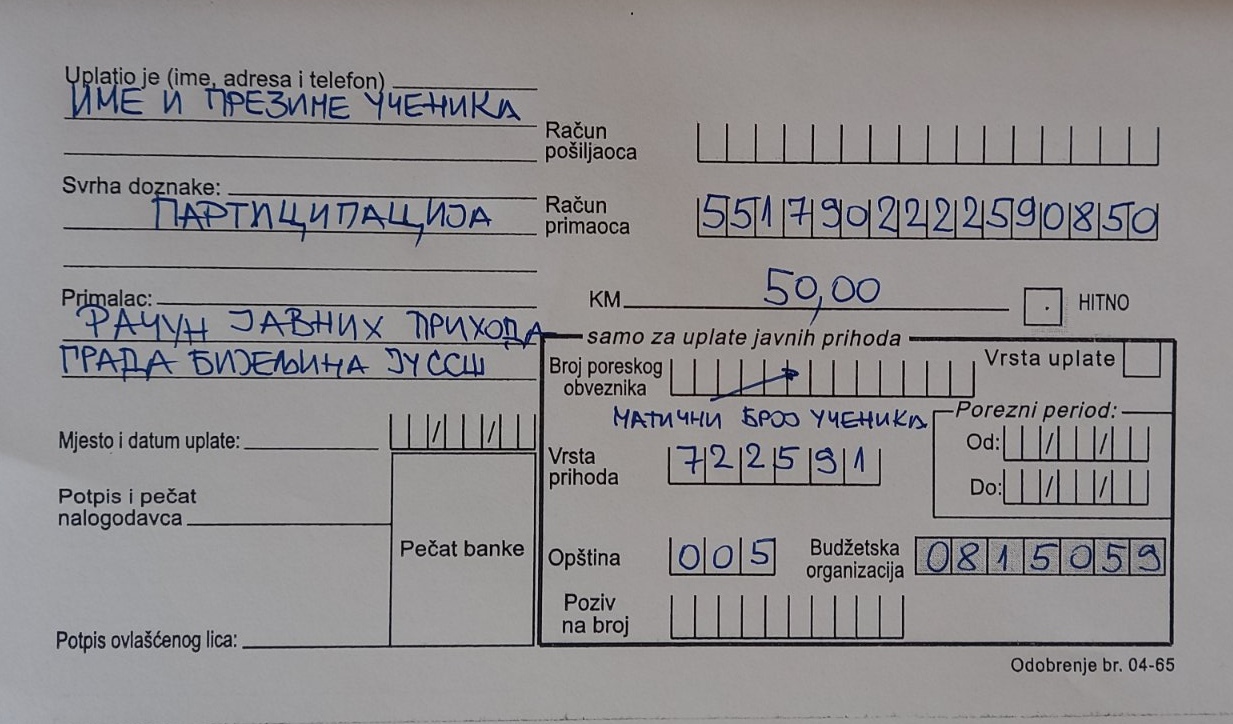 Uplatio je (ime, adresa i telefon)
ИМЕ И ПРЕЗИМЕ УЧЕНИКА
Račun
pošiljaoca
Svrha doznake:
ПАРТИЦИПАЦИЈА
Račun
primaoca
5517902222590850
Primalac:
РАЧУН ЈАВНИХ ПРИХОДА
ГРАДА БИЈЕЉИНА ЈУ ССШ
KM 50,00
HITNO
samo za uplate javnih prihoda
Broj poreskog
obveznika
Vrsta uplate
МАТИЧНИ БРОЈ УЧЕНИКА
Porezni period:
Od: / /
Do: / /
Mjesto i datum uplate: / /
Vrsta
prihoda
722591
Potpis i pečat
nalogodavca
Pečat banke
Opština
005
Budžetska
organizacija
0815059
Poziv
na broj
Potpis ovlašćenog lica:
Odobrenje br. 04-65